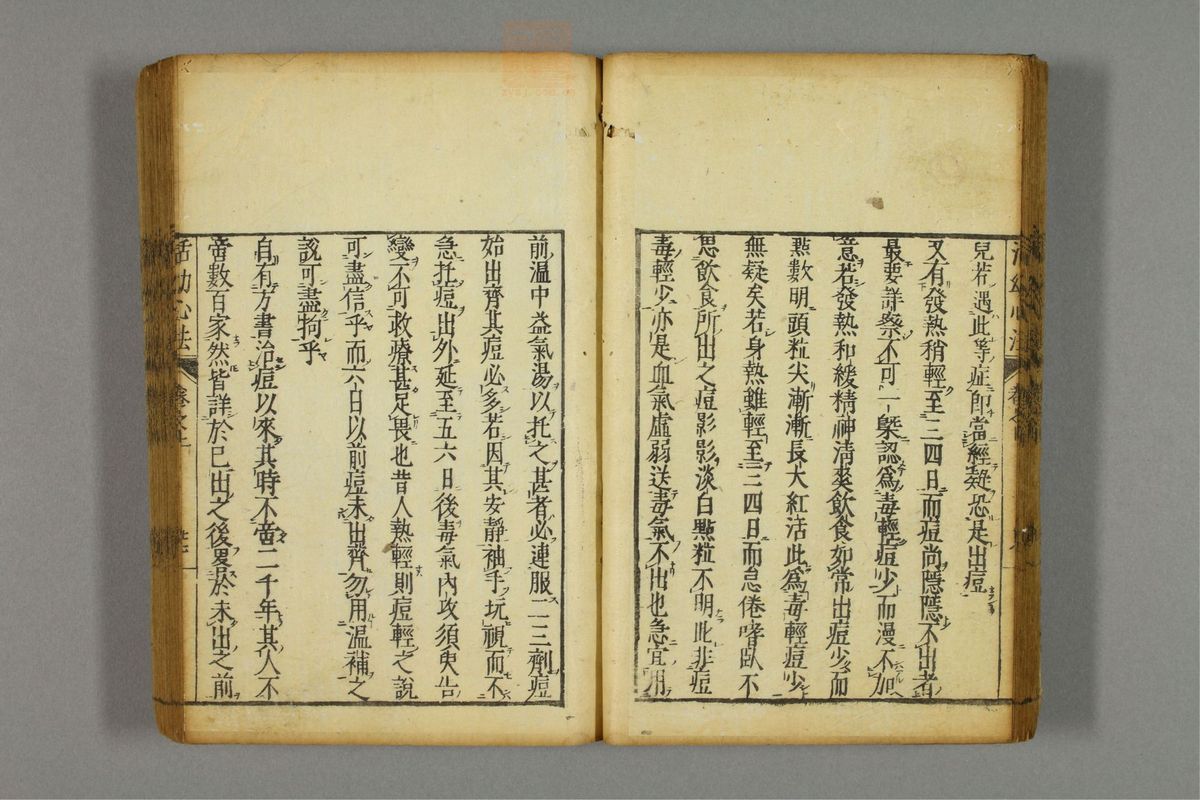 兒若遇此等症即當經疑恐是出痘
又有發熱稍輕至三四日而痘尚隱隱不出者
最要詳察不可一槩認爲毒輕痘少而漫不加
意若發熱和緩精神清爽飲食如常出痘少而
㸃數明頭粒尖漸漸長大紅活此爲毒輕痘少
無疑矣若身熱雖輕至三四日而怠倦嗜臥不
思飲食所出之痘影影淡白㸃粒不明此非痘
毒輕少亦是血氣虛弱送毒氣不出也急宜用
前溫中益氣湯以托之甚者必連服二三劑痘
始出齊其痘必多若因其安靜袖手玩視而不
急托痘出外延至五六日後毒氣內攻須臾告
變不可救療甚足畏也昔人熱輕則痘輕之說
可盡信乎而六日以前痘未出齊勿用溫補之
說可盡拘乎
自有方書治痘以來其時不啻二千年其人不
啻數百家然皆詳於已出之後畧於未出之前
活幼心法
卷之上